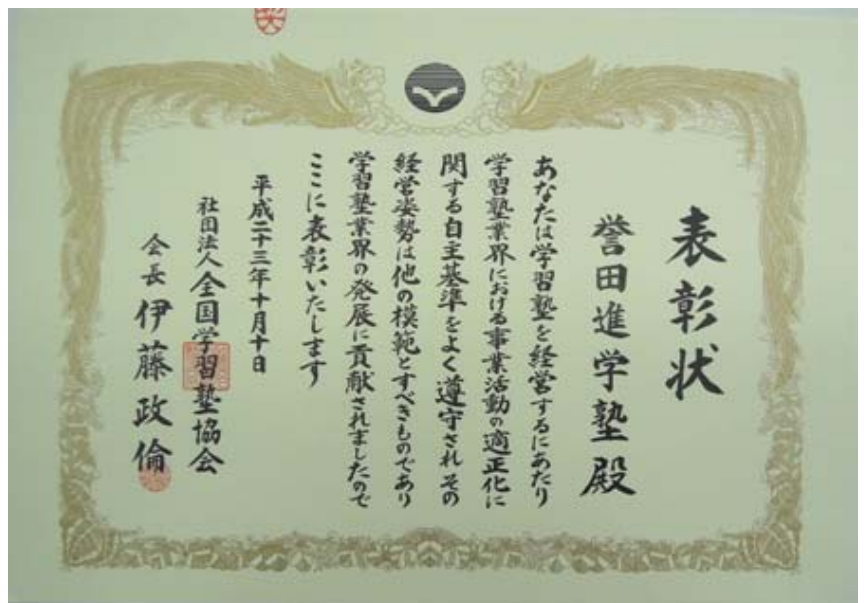 表彰状
誉田進学塾殿
あなたは学習塾を経営するにあたり
学習塾業界における事業活動の適正化に
関する自主基準をよく遵守されその
経営姿勢は他の模範とすべきものであり
学習塾業界の発展に貢献されましたので
ここに表彰いたします
平成二十三年十月十日
社団法人全国学習塾協会
会長伊藤政倫